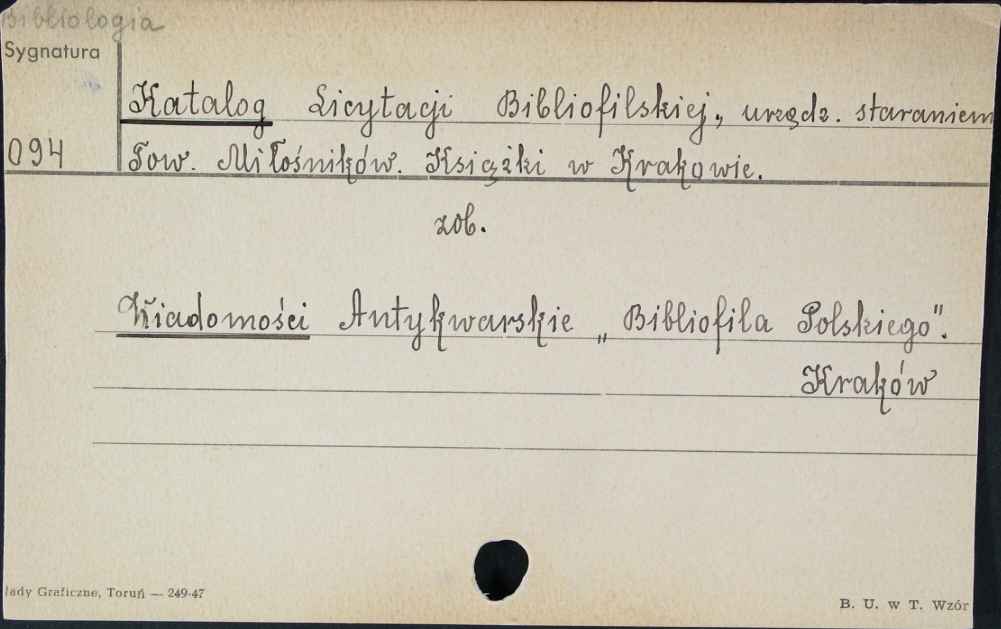 Bibliologia
Sygnatura
Katalog Licytacji Bibliofilskiej, urządz. staraniem
094
Tow. Miłośników. Książki w Krakowie.
zob.
Wiadomości Antykwarskie „Bibliofila Polskiego".
Kraków
łady Graficzne, Toruń — 249-47
B. U. w T. Wzór